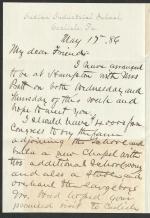 Indian Industrial School,
Carlisle Pa.
May 17th. 86
My dear Friend:
I have arranged
to be at Hampton with Mrs
Pratt on both Wednesday and
Thursday of this week and
hope to meet you.
I should have
Congress to buy the farm
adjoining the school and
build a new Chapel with
additional School room
and also a
the large boys